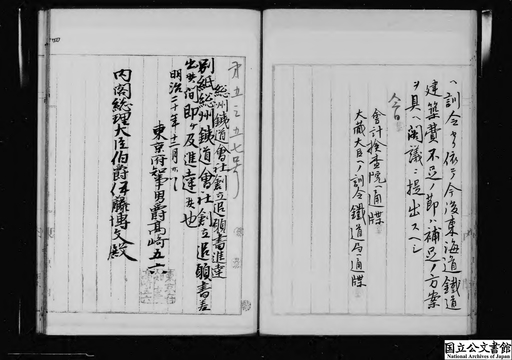 ハ訓令ニ依テ今後東海道鐵道
建築費不足ノ節ハ補足ノ方案
ヲ具ヘ閣議ニ提出スヘシ
会計検査院ヘ通牒
大蔵大臣ヘノ訓令鐵道局ヘ通牒
総州鉄道會社創立追願書進達
別紙総州鉄道會社創立追願書差
出候間即チ及進達候也
明治二十年十二月
東京府知事男爵高崎五六
内閣総理大臣伯爵伊藤博文殿
国立公文書館
National Archives of Japan